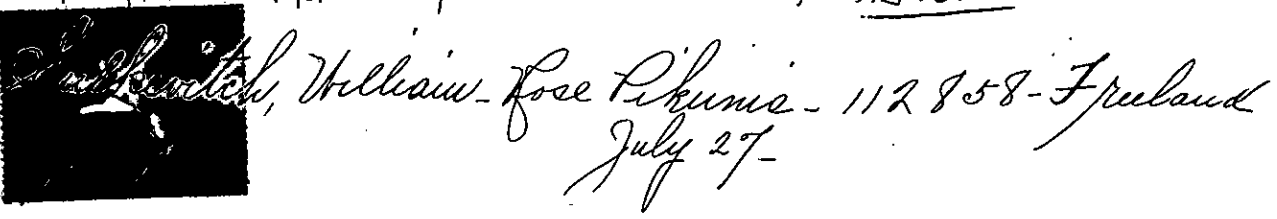 William - Rose Pikunis - 112858 - Freeland
July 27 -